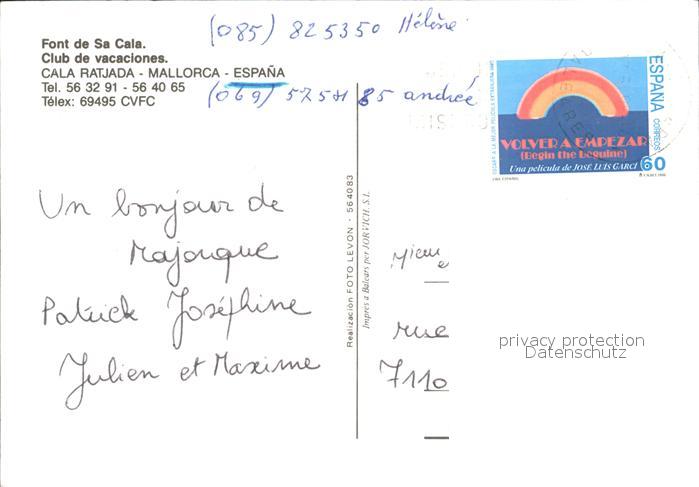 (085) 825350 Hélène
Font de Sa Cala.
Club de vacaciones.
CALA RATJADA - MALLORCA - ESPAÑA
Tel. 56 32 91 - 56 40 65
Télex: 69495 CVFC
(069) 575481 85 andrée
ESPAÑA
CORREOS
VOLVER A EMPEZAR
(Begin the Beguine)
Una película de JOSE LUIS GARCI
60
Un bonjour de
Majorque
Patrick Joséphine
Julien et Maxime
Realización FOTO LEVON - 564083
Imprès a Balears per JORVICH, S.L.
rue
7110
privacy protection
Datenschutz